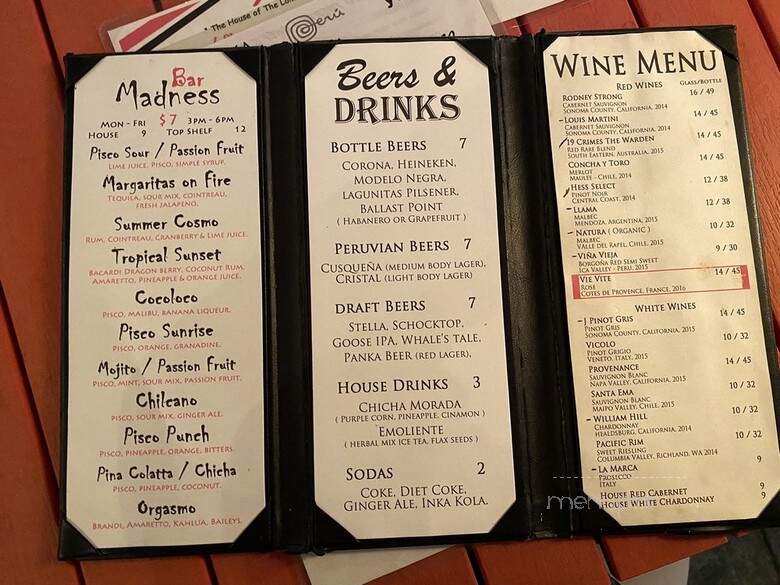 * The House of The Lom
Perú
Bar
Madness
MON - FRI $7 3PM - 6PM
HOUSE 9 TOP SHELF 12
Pisco Sour / Passion Fruit
LIME JUICE, PISCO, SIMPLE SYRUP.
Margaritas on Fire
TEQUILA, SOUR MIX, COINTREAU,
FRESH JALAPENO.
Summer Cosmo
RUM, COINTREAU, CRANBERRY & LIME JUICE.
Tropical Sunset
BACARDI DRAGON BERRY, COCONUT RUM,
AMARETTO, PINEAPPLE & ORANGE JUICE.
Cocoloco
PISCO, MALIBU, BANANA LIQUEUR.
Pisco Sunrise
PISCO, ORANGE, GRANADINE.
Mojito / Passion Fruit
PISCO, MINT, SOUR MIX, PASSION FRUIT.
Chilcano
PISCO, SOUR MIX, GINGER ALE.
Pisco Punch
PISCO, PINEAPPLE, ORANGE, BITTERS.
Pina Colatta / Chicha
PISCO, PINEAPPLE, COCONUT.
Orgasmo
BRANDI, AMARETTO, KAHLUA, BAILEYS.
Beers &
DRINKS
BOTTLE BEERS 7
CORONA, HEINEKEN,
MODELO NEGRA,
LAGUNITAS PILSENER,
BALLAST POINT
( HABANERO OR GRAPEFRUIT )
PERUVIAN BEERS 7
CUSQUEÑA (MEDIUM BODY LAGER),
CRISTAL (LIGHT BODY LAGER)
DRAFT BEERS 7
STELLA, SCHOCKTOP,
GOOSE IPA, WHALE'S TALE,
PANKA BEER (RED LAGER),
HOUSE DRINKS 3
CHICHA MORADA
( PURPLE CORN, PINEAPPLE, CINAMON )
EMOLIENTE
( HERBAL MIX ICE TEA, FLAX SEEDS )
SODAS 2
COKE, DIET COKE,
GINGER ALE, INKA KOLA.
WINE MENU
RED WINES GLASS/BOTTLE
RODNEY STRONG 16 / 49
CABERNET SAUVIGNON
SONOMA COUNTY, CALIFORNIA, 2014
LOUIS MARTINI 14 / 45
CABERNET SAUVIGNON
SONOMA COUNTY, CALIFORNIA, 2014
19 CRIMES THE WARDEN 14 / 45
RED RARE BLEND
SOUTH EASTERN, AUSTRALIA, 2015
CONCHA Y TORO 14 / 45
MERLOT
MAULEE - CHILE, 2014
HESS SELECT 12 / 38
PINOT NOIR
CENTRAL COAST, 2014
LLAMA 12 / 38
MALBEC
MENDOZA, ARGENTINA, 2015
NATURA ( ORGANIC ) 10 / 32
MALBEC
VALLE DEL RAPEL, CHILE, 2015
VIÑA VIEJA 9 / 30
BORGOÑA RED SEMI SWEET
ICA VALLEY - PERU, 2015
VIE VITE 14 / 45
ROSE
COTES DE PROVENCE, FRANCE, 2016
WHITE WINES
J PINOT GRIS 14 / 45
PINOT GRIS
SONOMA COUNTY, CALIFORNIA, 2015
VICOLO 10 / 32
PINOT GRIGIO
VENETO, ITALY, 2015
PROVENANCE 14 / 45
SAUVIGNON BLANC
NAPA VALLEY, CALIFORNIA, 2015
SANTA EMA 10 / 32
SAUVIGNON BLANC
MAIPO VALLEY, CHILE, 2015
WILLIAM HILL 10 / 32
CHARDONNAY
HEALDSBURG, CALIFORNIA, 2014
PACIFIC RIM 10 / 32
SWEET RIESLING
COLUMBIA VALLEY, RICHLAND, WA 2014
LA MARCA 9
PROSECCO
ITALY
HOUSE RED CABERNET 9
HOUSE WHITE CHARDONNAY 9